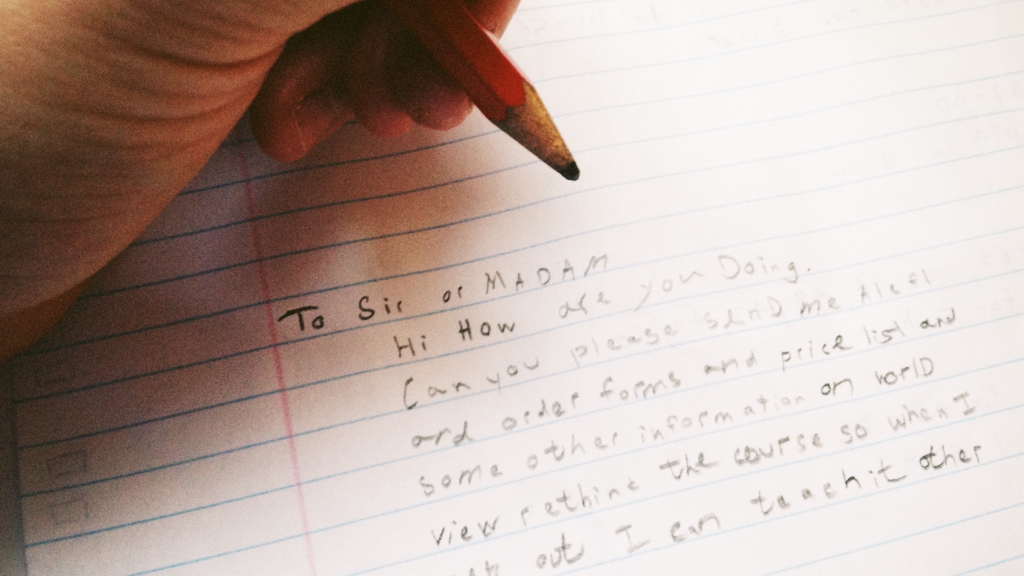 To Sir or MADAM
Hi How are you Doing.
Can you please senD me
and order forms and price list and
some other information on worlD
view rethink the course so when I
out I can teach it other